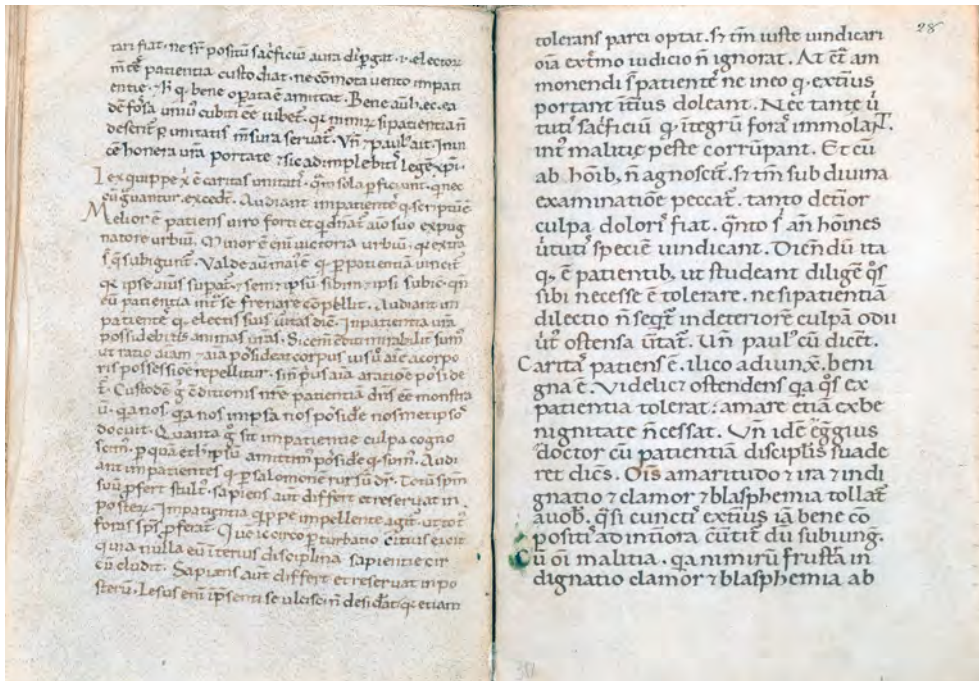 tari fiat. ne sr̄ positū sac̄ficiū aura dip̄gat. ⁊ elector
patientia custodiat. ne cōmota uento impati
entie. bene opata ē amittat. Bene
dē fossa uniū cubiti eē iubet. si patientia n̄
deserit unitatis m̄sura seruat̄. Vn̄ ⁊ paul᷒ ait. Inui
cē honera ur̄a portate ⁊ sic adimplebitis legē xp̄i.
Lex quippe x̄ ē caritas unitatis. sola pficiunt. q nec
excedt̄. Audiant impatientes q scriptū ē.
Melior ē patiens uiro forti et q dn̄at̄ aīo suo expug
natore urbiū. Minor ē eni uictoria urbiū. extra
subigunt̄. Valde aū mai᷒ ē q p patientiā uincit̄.
ipse aīus supat̄. ⁊ sem&ipsū sibim&ipsi subic.
eū patientia int᷒ se frenare cōpellit. Audiant im
patientes q electis suis ueritas dic̄. In patientia ur̄a
possidebitis animas ur̄as. Sic eni cōditi mirabilit̄ sum᷒
ut ratio aīam. ⁊ aīa possideat corpus ius aīe a corpo
ris possessiōe repellitur. si n̄ pus aīa a ratiōe posside
t̄. Custodē g̊ cōditionis nr̄e patientiā dn̄s eē monstra
ū. qa nos in ipsa nos possidē nosmetipsos
docuit. Quanta g̊ sit impatientie culpa cogno
scim᷒. p quā et hoc ipsū amittim᷒ possidē q sum᷒. Audi
ant impatientes q p salomonē rursū dr̄. Totū spm̄
suū pfert stult᷒. sapiens aūt differt et reseruat in
posterū. Impatientia q̄ppe impellente agit̄. ut tot᷒
foras sps̄ pferat̄. Quē iccirco pturbatio citius eicit
quia nulla eū interius disciplina sapientie cir
cū cludit. Sapiens aūt differt et reseruat in po
sterū. Lesus eni in p̄senti se ulcisci n̄ desiderat. q etiam
28
tolerans parci optat. s; tm̄ iuste uindicari
oīa extremo iudicio n̄ ignorat. At et̄ am
monendi s̄ patientes ne in eo q. exterius
portant interius doleant. Nec tante uir
tutis sac̄ficiū q. integrū foras immolant.
int᷒ malitie peste corrūpant. Et cū
ab hoīb; n̄ agnoscit̄. s; tm̄ sub diuina
examinatiōe peccat̄. tanto deterior
culpa doloris fiat. q̄nto s̄ an̄ hōines
uirtutis speciē uindicant. Dicendū ita
q. ē patientib; ut studeant diligē q̊s
sibi necesse ē tolerare. ne si patientiā
dilectio n̄ seqt̄ in deteriorē culpā odii
uirt᷒ ostensa uertat̄. Un̄ paul᷒ cū dicēt.
Caritas patiens ē. ilico adiunx̄. beni
gna ē. Videlic& ostendens qa q̊s ex
patientia tolerat: amare etiā ex be
nignitate n̄ cessat. Un̄ idē egregius
doctor cū patientiā discipulis suade
ret dicēs. Oīs amaritudo ⁊ ira ⁊ indi
gnatio ⁊ clamor ⁊ blasphemia tollat̄
a uob̄. q̄si cunctis exterius iā bene cō
positis ad intiora cūtit̄ dū subiung.
Cū oī malitia. qa nimirū frusta in
dignatio clamor ⁊ blasphemia ab